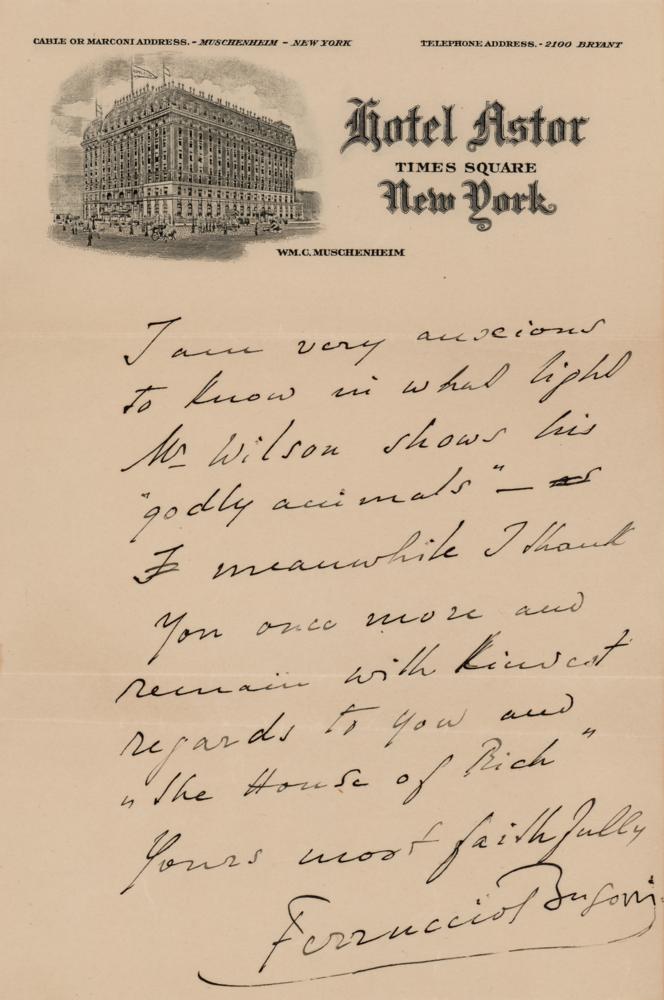 CABLE OR MARCONI ADDRESS. - MUSCHENHEIM - NEW YORK
TELEPHONE ADDRESS. - 2100 BRYANT
Hotel Astor
TIMES SQUARE
New York
WM. C. MUSCHENHEIM
I am very anxious
to know in what light
Mr Wilson shows his
"godly animals" —
meanwhile I thank
You once more and
remain with kindest
regards to you and
„The House of Rich"
Yours most faithfully
Ferruccio Busoni